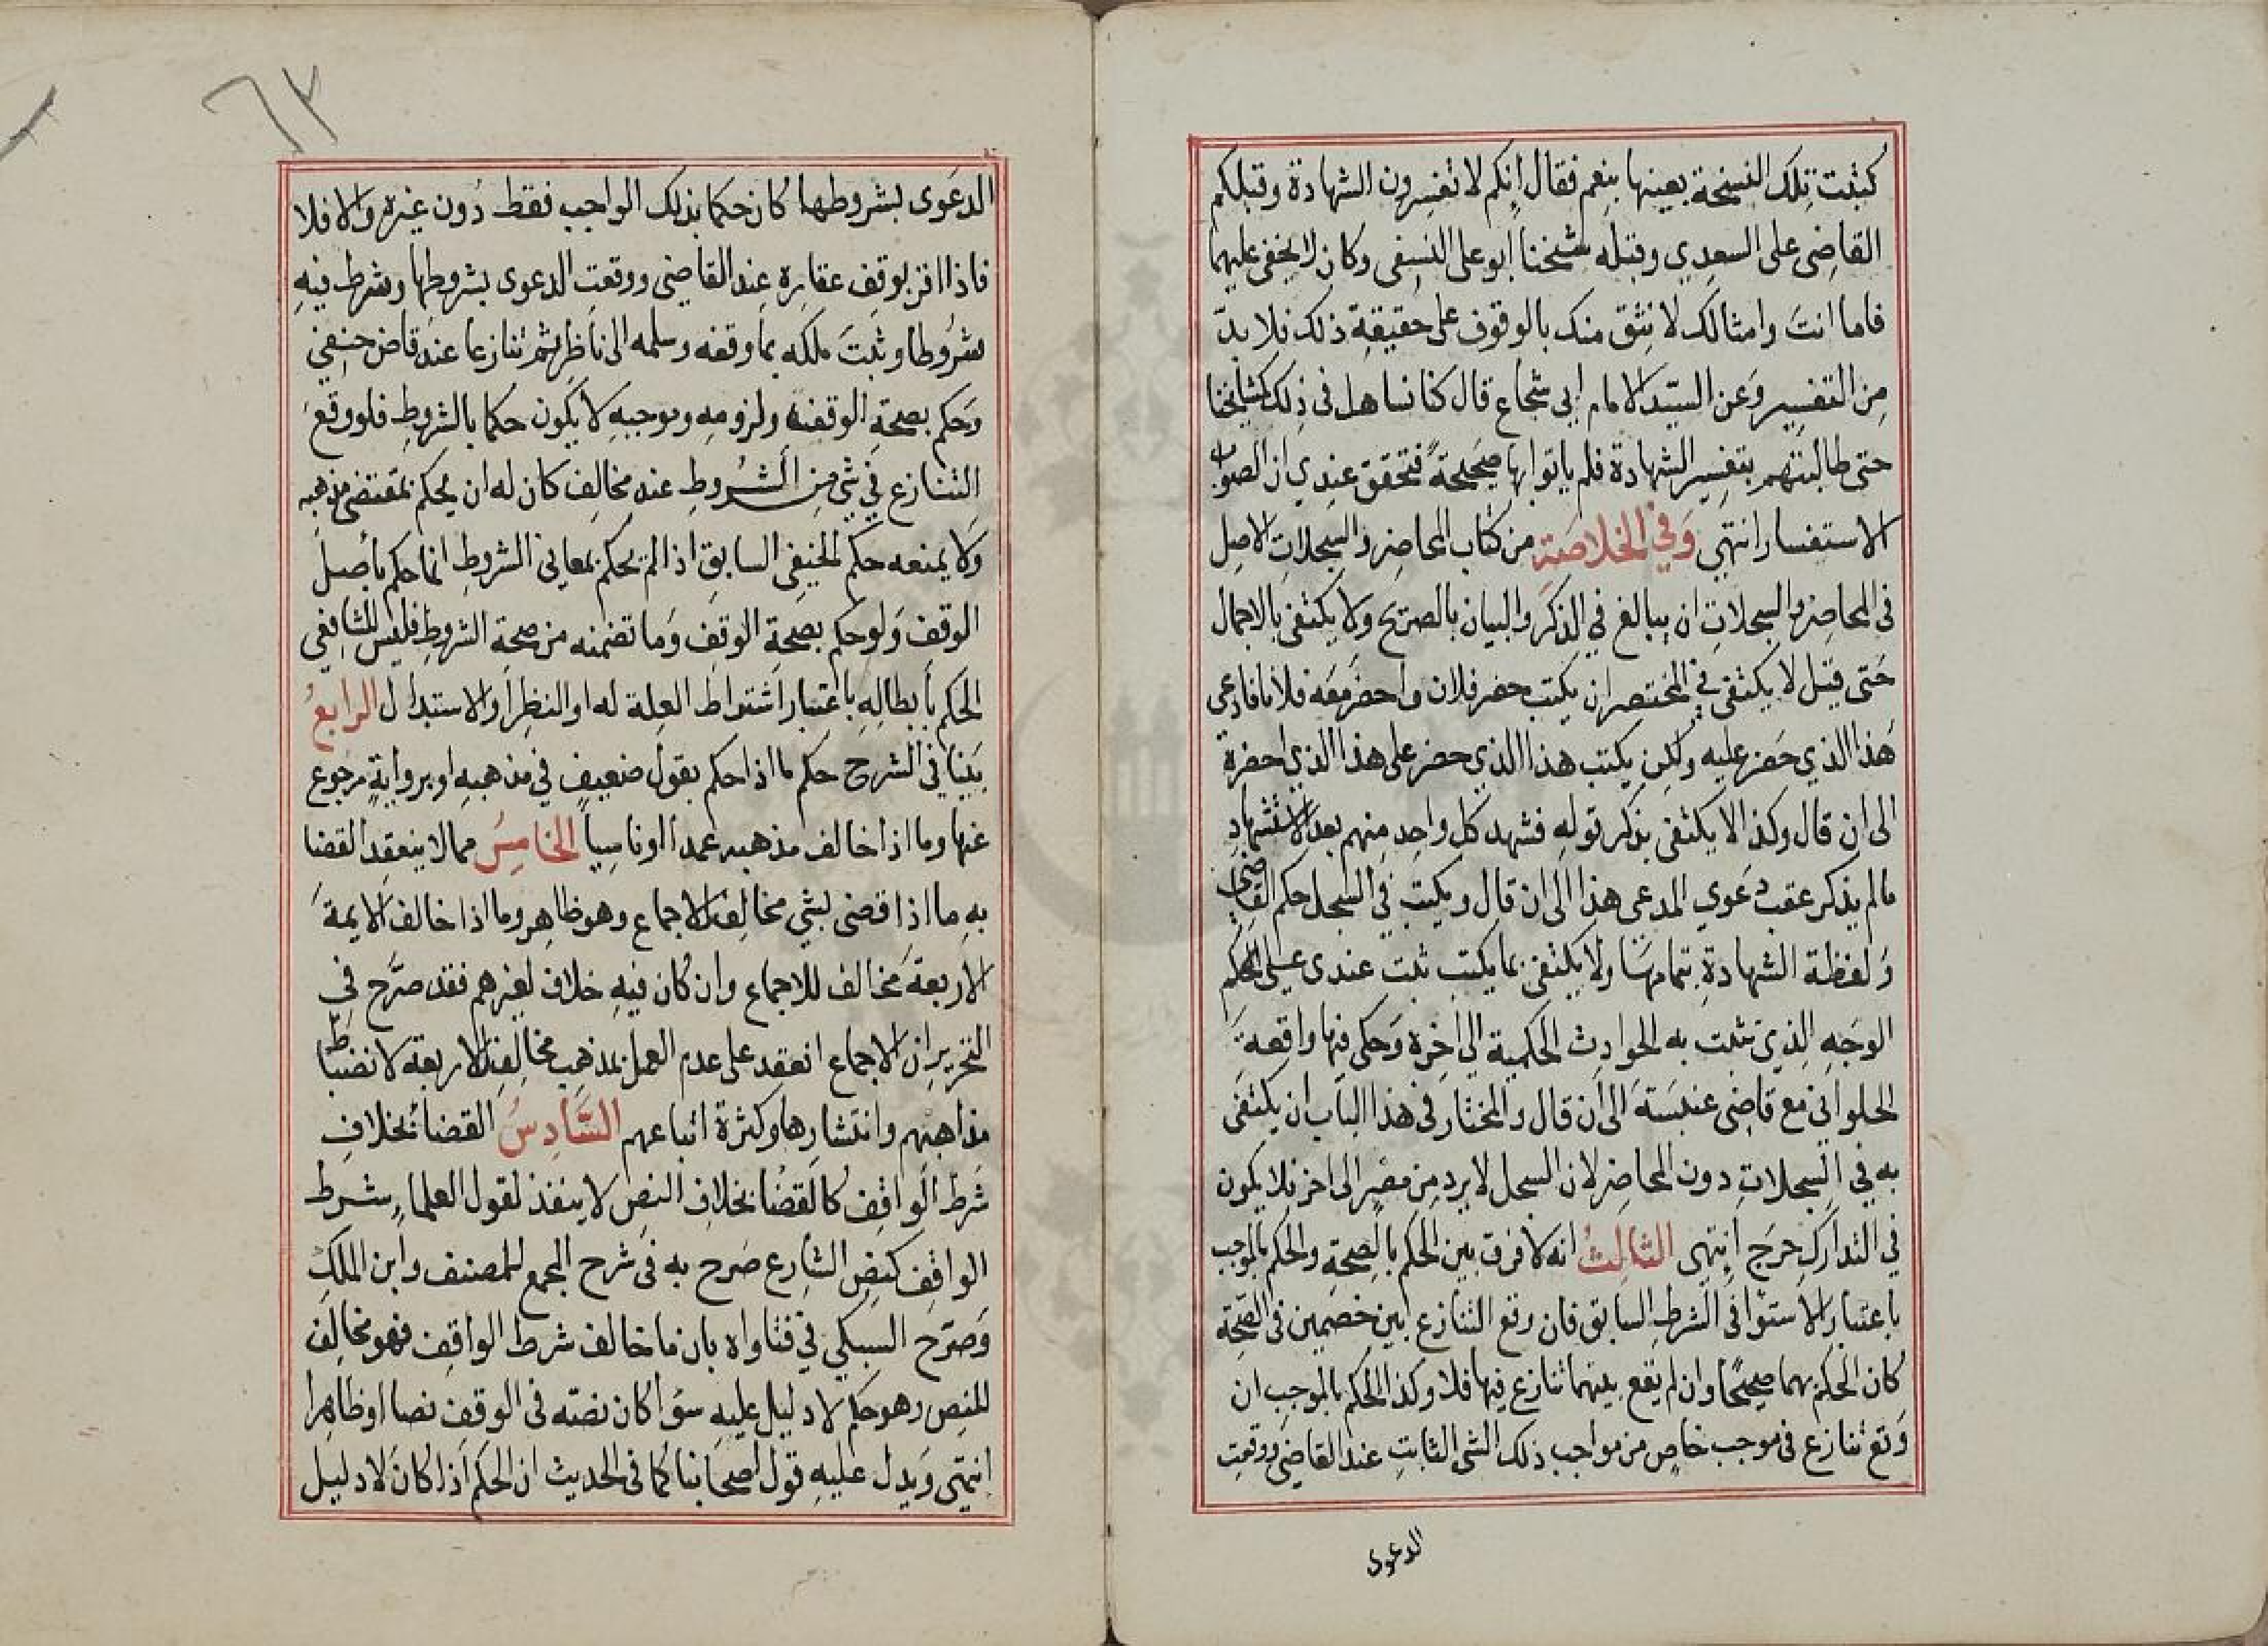 كتبت تلك النسخة بعينها بنعم فقال انكم لا تفسرون الشهادة وقبلكم
القاضى على السعدي وقبله شيخنا ابو على النسفى وكان لا يخفى عليهما
فاما انت وامثالك لا نثق منك بالوقوف على حقيقة ذلك فلا بد
من التفسير وعن السيد الامام ابي شجاع قال كنا نساهل فى ذلك كمشايخنا
حتى طالبتهم بتفسير الشهادة فلم ياتوا بها صحيحة فتحقق عندي ان الصواب
الاستفسار انتهى وفي الخلاصة من كتاب المحاضر والسجلات الاصل
فى المحاضر والسجلات ان يبالغ في الذكر والبيان بالصريح ولا يكتفى بالاجمال
حتى قيل لا يكتفى في المختصر ان يكتب حضر فلان واحضر معه فلانا فادعى
هذا الذي حضر عليه ولكن يكتب هذا الذي حضر على هذا الذي احضره
الى ان قال وكذا لا يكتفى بذكر قوله فشهد كل واحد منهم بعد الاستشهاد
مالم يذكر عقب دعوي المدعى هذا الى ان قال ويكتب في السجل حكم القاضى
ولفظة الشهادة بتمامها ولا يكتفى بما يكتب ثبت عندى على الحكم
الوجه الذي تثبت به الحوادث الحكمية الى اخره وحكى فيها واقعة
الحلوانى مع قاضى عنبسة الى ان قال والمختار فى هذا الباب ان يكتفى
به في السجلات دون المحاضر لان السجل لا يرد من مصر الى اخر فلا يكون
في التدارك حرج انتهى الثالث انه لا فرق بين الحكم بالصحة والحكم بالموجب
باعتبار الاستوا فى الشرط السابق فان وقع التنازع بين خصمين فى الصحة
كان الحكم بهما صحيحا وان لم يقع بينهما تنازع فيها فلا وكذا الحكم بالموجب ان
وقع تنازع فى موجب خاص من مواجب ذلك الشى الثابت عند القاضى ووقعت
الدعوى
٦٢
الدعوى بشروطها كان حكما بذلك الواجب فقط دون غيره والا فلا
فاذا اقر بوقف عقاره عند القاضى ووقعت الدعوى بشروطها وشرط فيه
شروطا وثبت ملكه بما وقفه وسلمه الى ناظر ثم تنازعا عند قاض حنفي
وحكم بصحة الوقفية ولزومه وموجبه لا يكون حكما بالشروط فلو وقع
التنازع في شى من الشروط عند مخالف كان له ان يحكم بمقتضى مذهبه
ولا يمنعه حكم الحنيفى السابق اذ لم يحكم بمعانى الشروط انما حكم باصل
الوقف ولو حكم بصحة الوقف وما تضمنه من صحة الشروط فليس للشافعي
الحكم بابطاله باعتبار اشتراط الغلة له او النظر او الاستبدال الرابع
بينا فى الشرح حكم ما اذا حكم بقول ضعيف في مذهبه او برواية مرجوع
عنها وما اذا خالف مذهبه عمدا او ناسيا الخامس مما لا ينعقد القضا
به ما اذا قضى بشي مخالف الاجماع وهو ظاهر وما اذا خالف الايمة
الاربعة مخالف للاجماع وان كان فيه خلاف لغيرهم فقد صرح في
التحرير ان الاجماع انعقد على عدم العمل بمذهب مخالف الاربعة لانضباط
مذاهبهم وانتشارها وكثرة اتباعهم السادس القضا بخلاف
شرط الواقف كالقضا بخلاف النص لا ينفذ لقول العلماء شرط
الواقف كنص الشارع صرح به فى شرح المجمع للمصنف وابن الملك
وصرح السبكي في فتاواه بان ما خالف شرط الواقف فهو مخالف
للنص وهو حكم لا دليل عليه سوا كان نصه فى الوقف نصا او ظاهرا
انتهى ويدل عليه قول اصحابنا كما فى الحديث ان الحكم اذا كان لا دليل